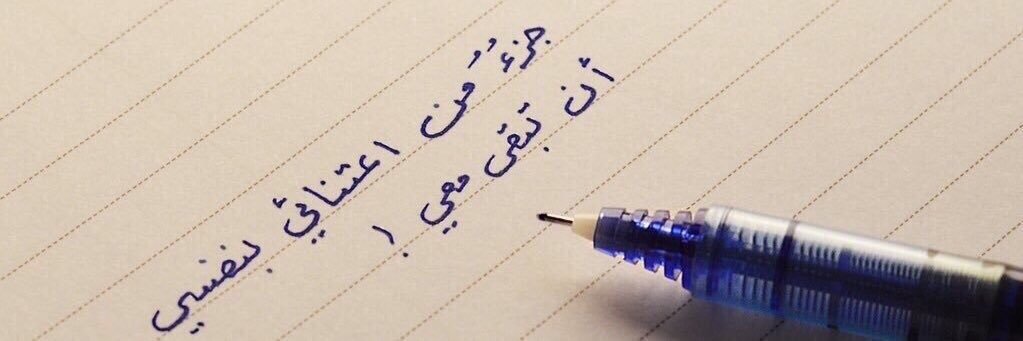 جزءٌ من اعتنائي بنفسي
أن تبقى معي !